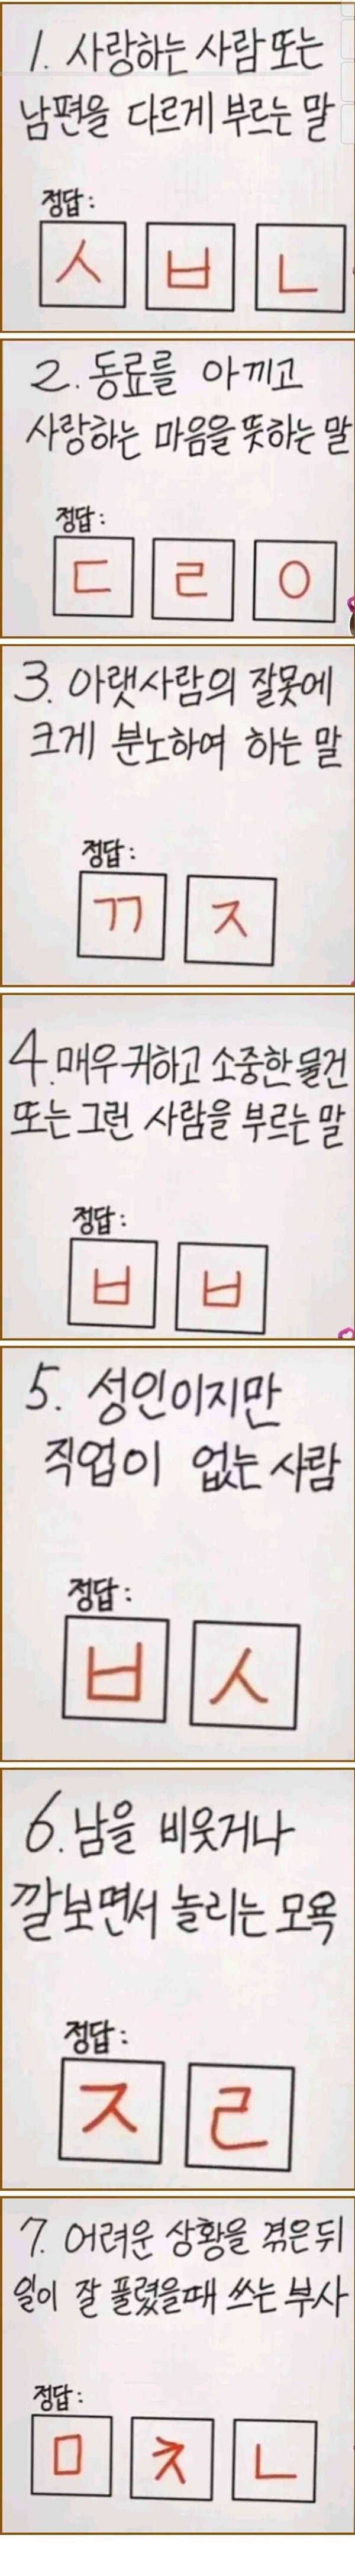 1. 사랑하는 사람 또는
남편을 다르게 부르는 말
정답:
ㅅ ㅂ ㄴ
2. 동료를 아끼고
사랑하는 마음을 뜻하는 말
정답:
ㄷ ㄹ ㅇ
3. 아랫사람의 잘못에
크게 분노하여 하는 말
정답:
ㄲ ㅈ
4. 매우 귀하고 소중한 물건
또는 그런 사람을 부르는 말
정답:
ㅂ ㅂ
5. 성인이지만
직업이 없는 사람
정답:
ㅂ ㅅ
6. 남을 비웃거나
깔보면서 놀리는 모욕
정답:
ㅈ ㄹ
7. 어려운 상황을 겪은 뒤
일이 잘 풀렸을 때 쓰는 부사
정답:
ㅁ ㅊ ㄴ